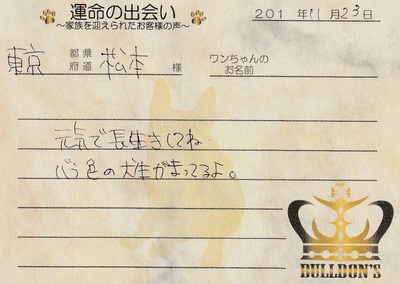 運命の出会い
～家族を迎えられたお客様の声～
201 年11月23日
東京 都県府道 松本 様 ワンちゃんのお名前
元気で長生きしてね
バラ色の犬生がまってるよ。
BULLDON'S